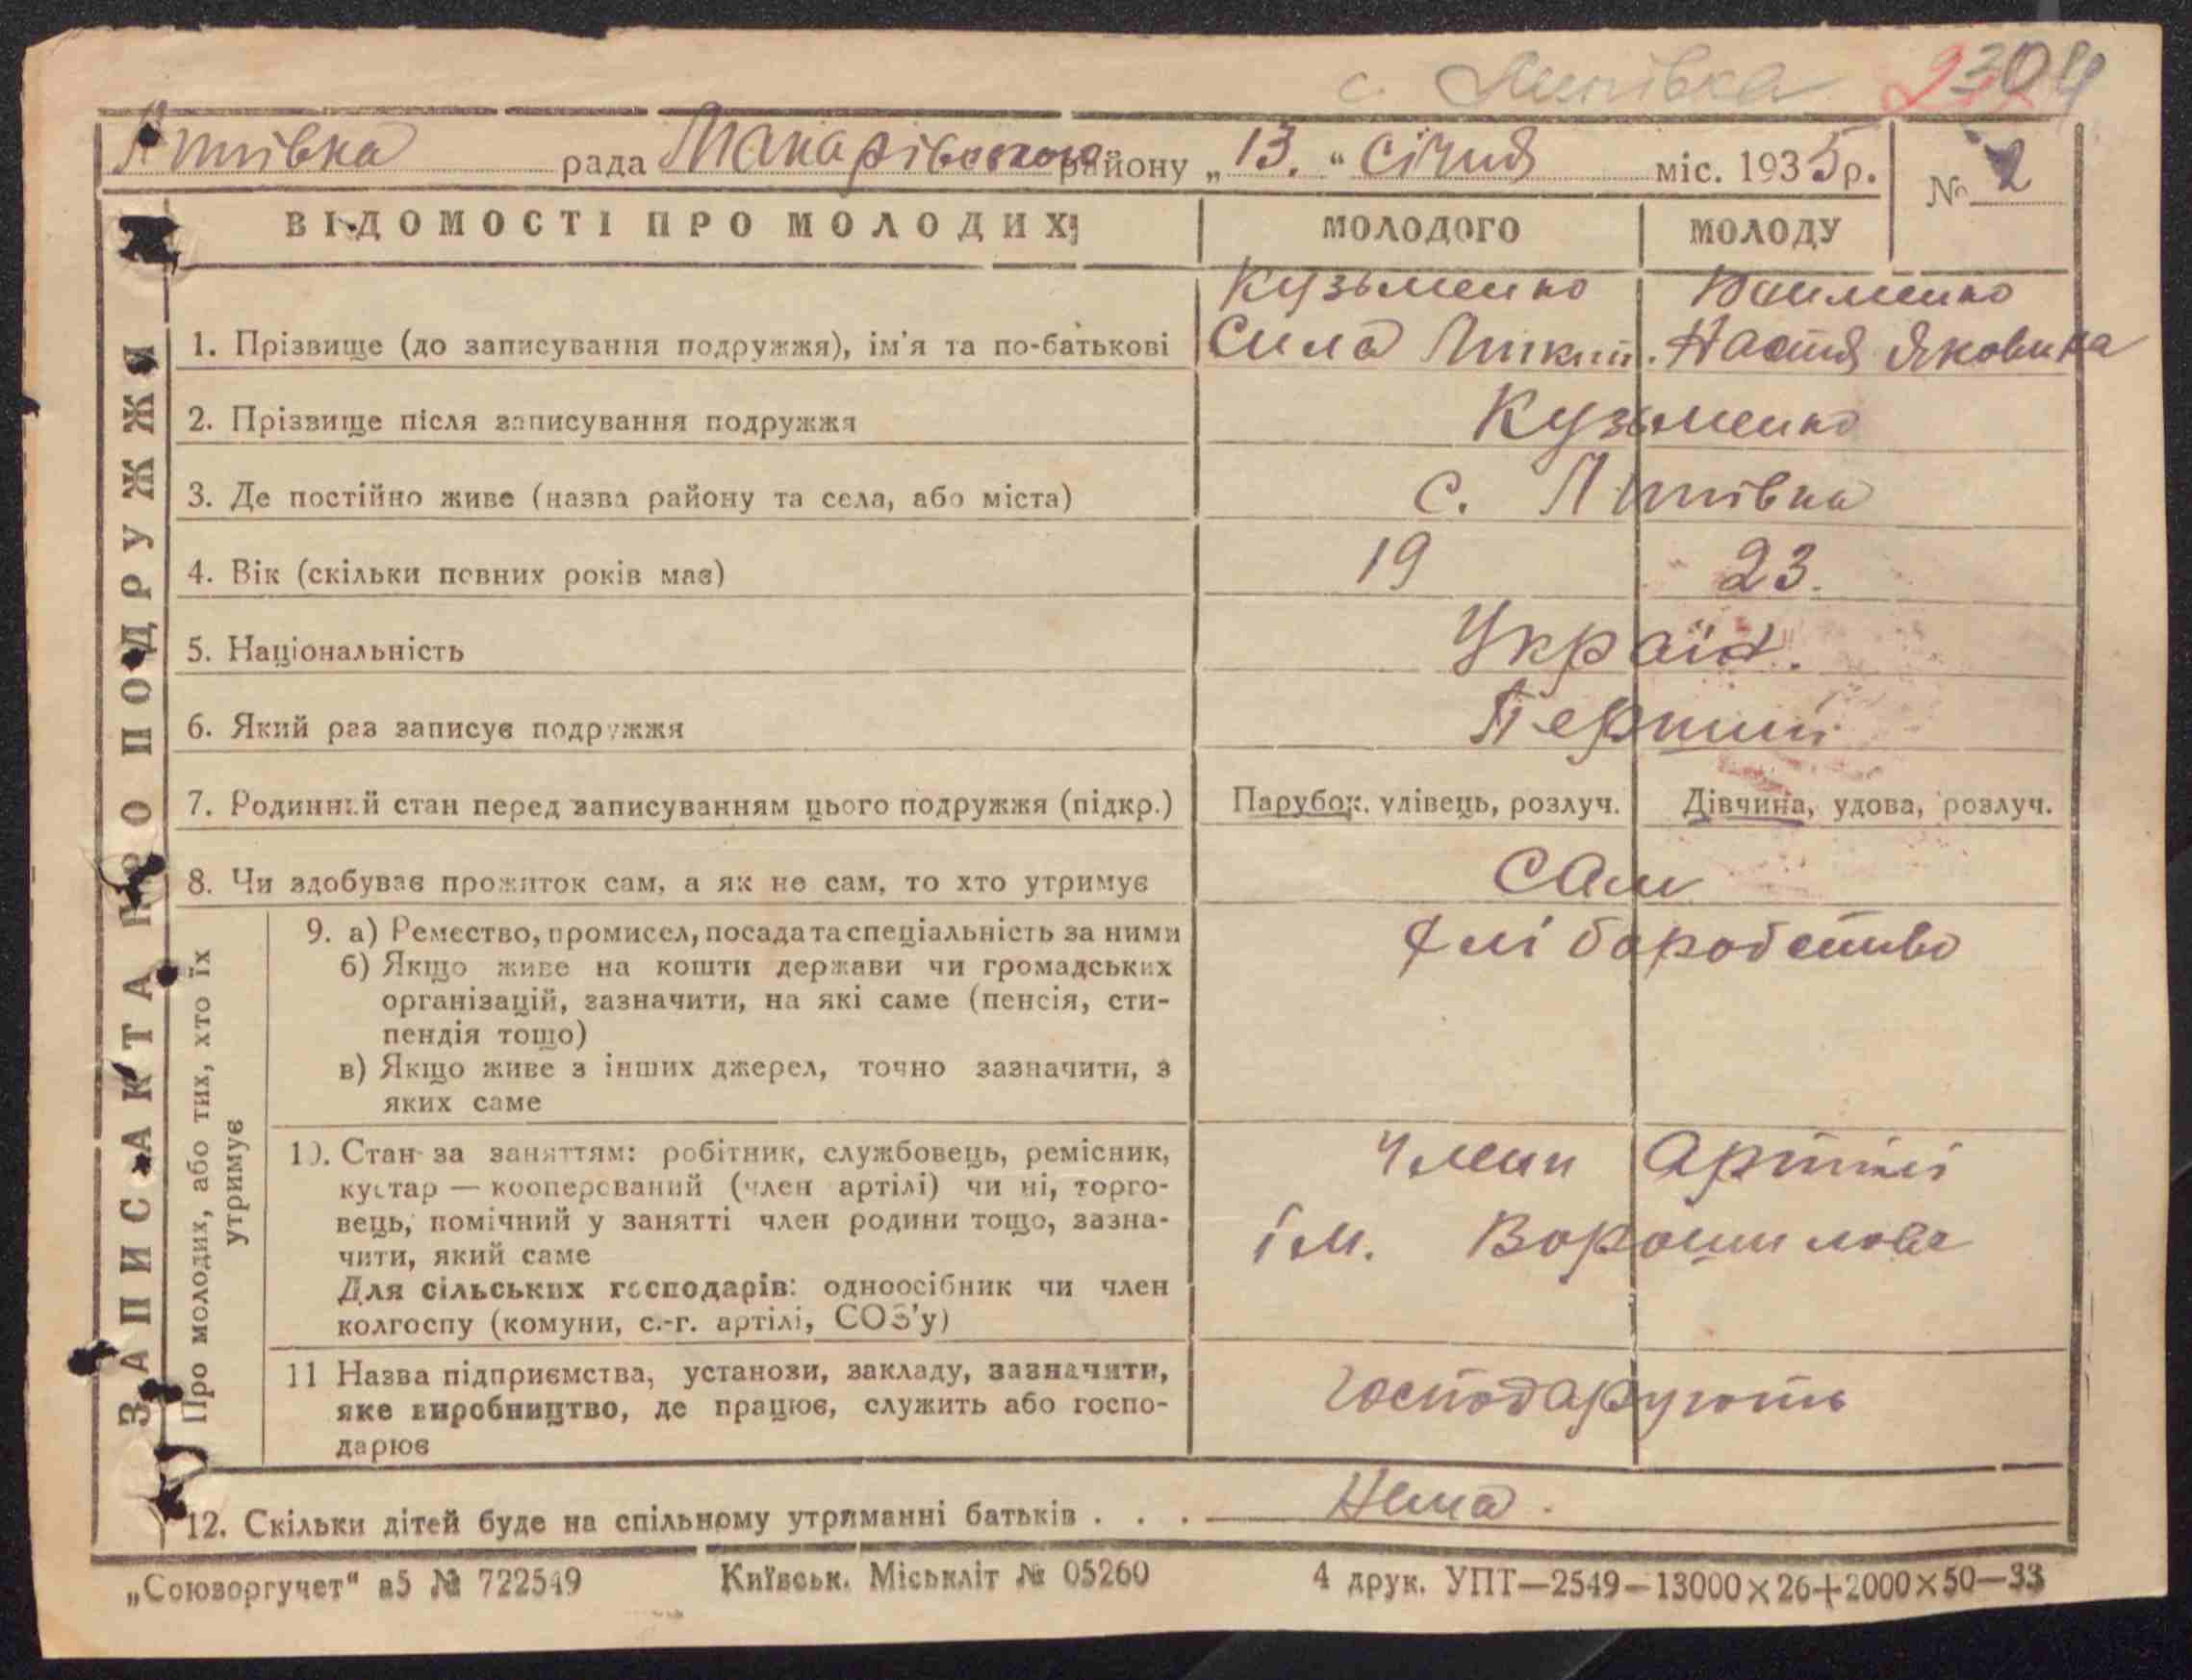 с. Липівка 304
Липівка рада Макарівського району „13.“ Січня міс. 1935 р. № 2
ВІДОМОСТІ ПРО МОЛОДИХ МОЛОДОГО МОЛОДУ
Кузьменко
1. Прізвище (до записування подружжя), ім'я та по-батькові Сила Микит. Настя Яковивна
2. Прізвище після записування подружжя Кузьменко
3. Де постійно живе (назва району та села, або міста) с. Липівка
4. Вік (скільки повних років має) 19 23.
5. Національність Україн.
6. Який раз записує подружжя Перший
7. Родинний стан перед записуванням цього подружжя (підкр.) Парубок, удівець, розлуч. Дівчина, удова, розлуч.
8. Чи здобуває прожиток сам, а як не сам, то хто утримує Сам
ЗАПИС АКТА ПРО ПОДРУЖЖЯ
Про молодих, або тих, хто їх
утримує
9. а) Ремество, промисел, посада та спеціальність за ними Хліборобство
б) Якщо живе на кошти держави чи громадських
організацій, зазначити, на які саме (пенсія, сти-
пендія тощо)
в) Якщо живе з інших джерел, точно зазначити, з
яких саме
10. Стан за заняттям: робітник, службовець, ремісник, Член Артілі
кустар — кооперований (член артілі) чи ні, торго-
вець, помічний у занятті член родини тощо, зазна- ім. Ворошилова
чити, який саме
Для сільських господарів: одноосібник чи член
колгоспу (комуни, с.-г. артілі, СОЗ'у)
11 Назва підприємства, установи, закладу, зазначити,
яке виробництво, де працює, служить або госпо- господарують
дарює
12. Скільки дітей буде на спільному утриманні батьків . . . Нема.
„Союзоргучет“ а5 № 722549 Київськ. Міськліт № 05260 4 друк. УПТ—2549—13000×26+2000×50—33